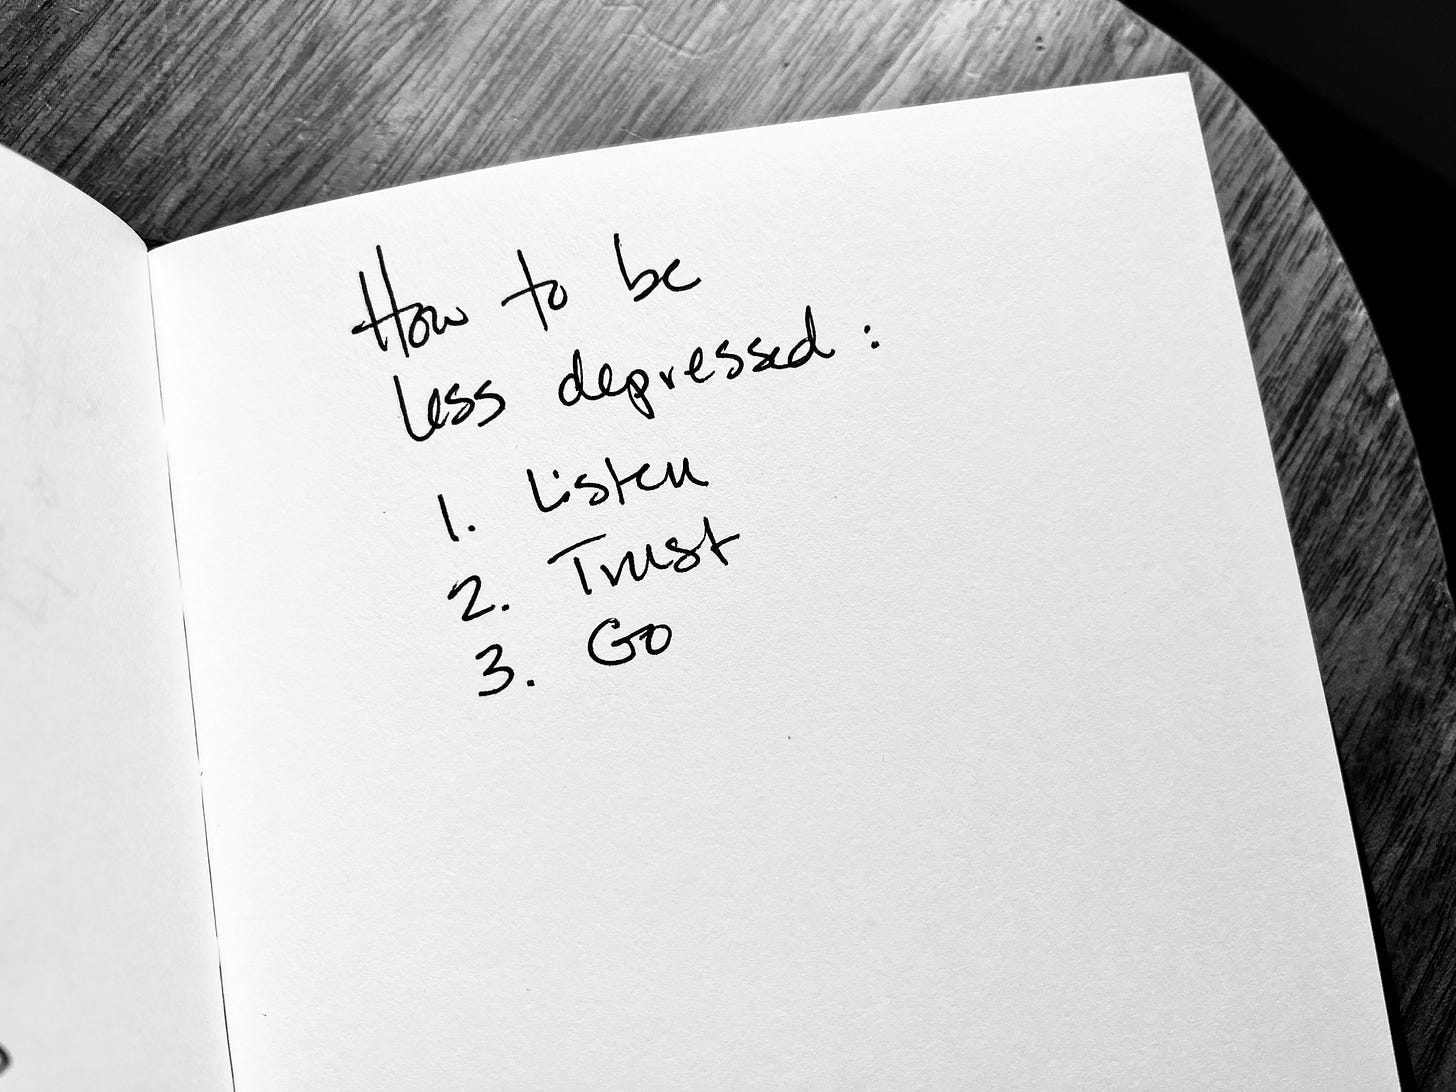 How to be
less depressed:
1. Listen
2. Trust
3. Go